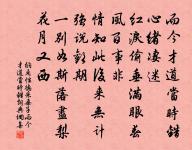 而今才道當時錯
心緒淒迷
紅淚偷垂滿眼春
風百事非
情知此後來無計
強說歡期
一別如斯落盡梨
花月又西
納蘭性德采桑子而今
才道當時錯